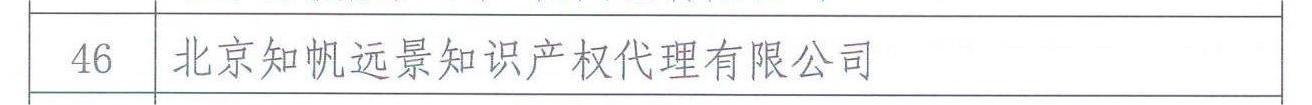 46 北京知帆远景知识产权代理有限公司